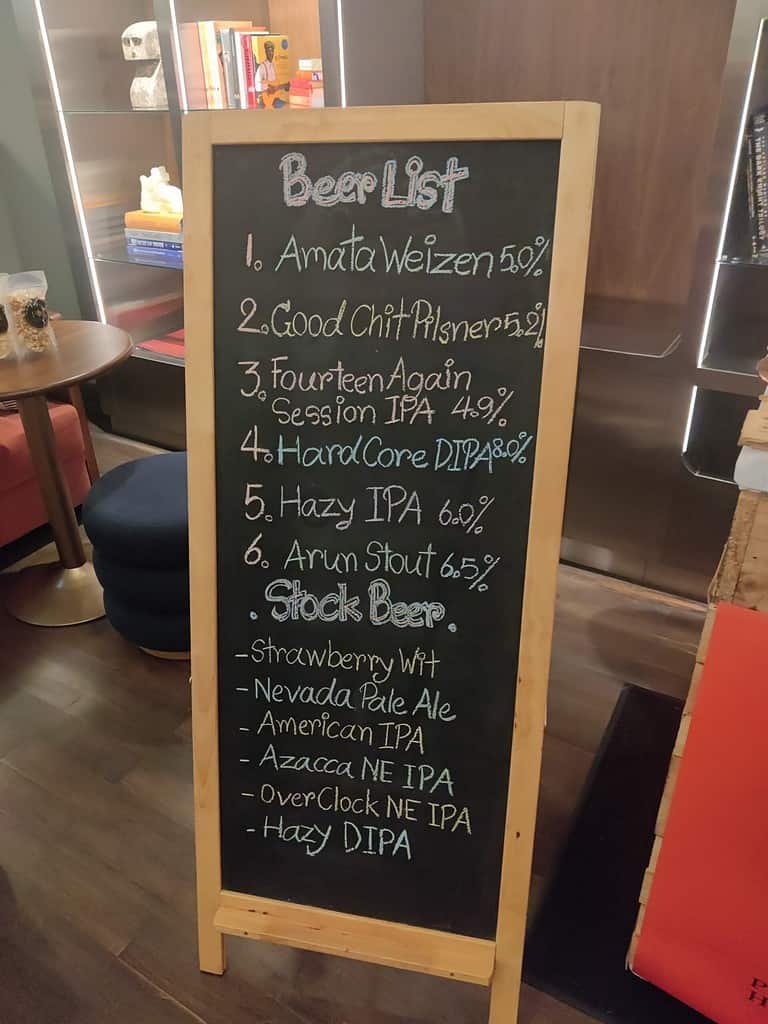 Beer List
1. Amata Weizen 5.0%
2. Good Chit Pilsner 5.2%
3. Fourteen Again
Session IPA 4.9%
4. Hard Core DIPA 8.0%
5. Hazy IPA 6.0%
6. Arun Stout 6.5%
. Stock Beer.
- Strawberry Wit
- Nevada Pale Ale
- American IPA
- Azacca NE IPA
- OverClock NE IPA
- Hazy DIPA